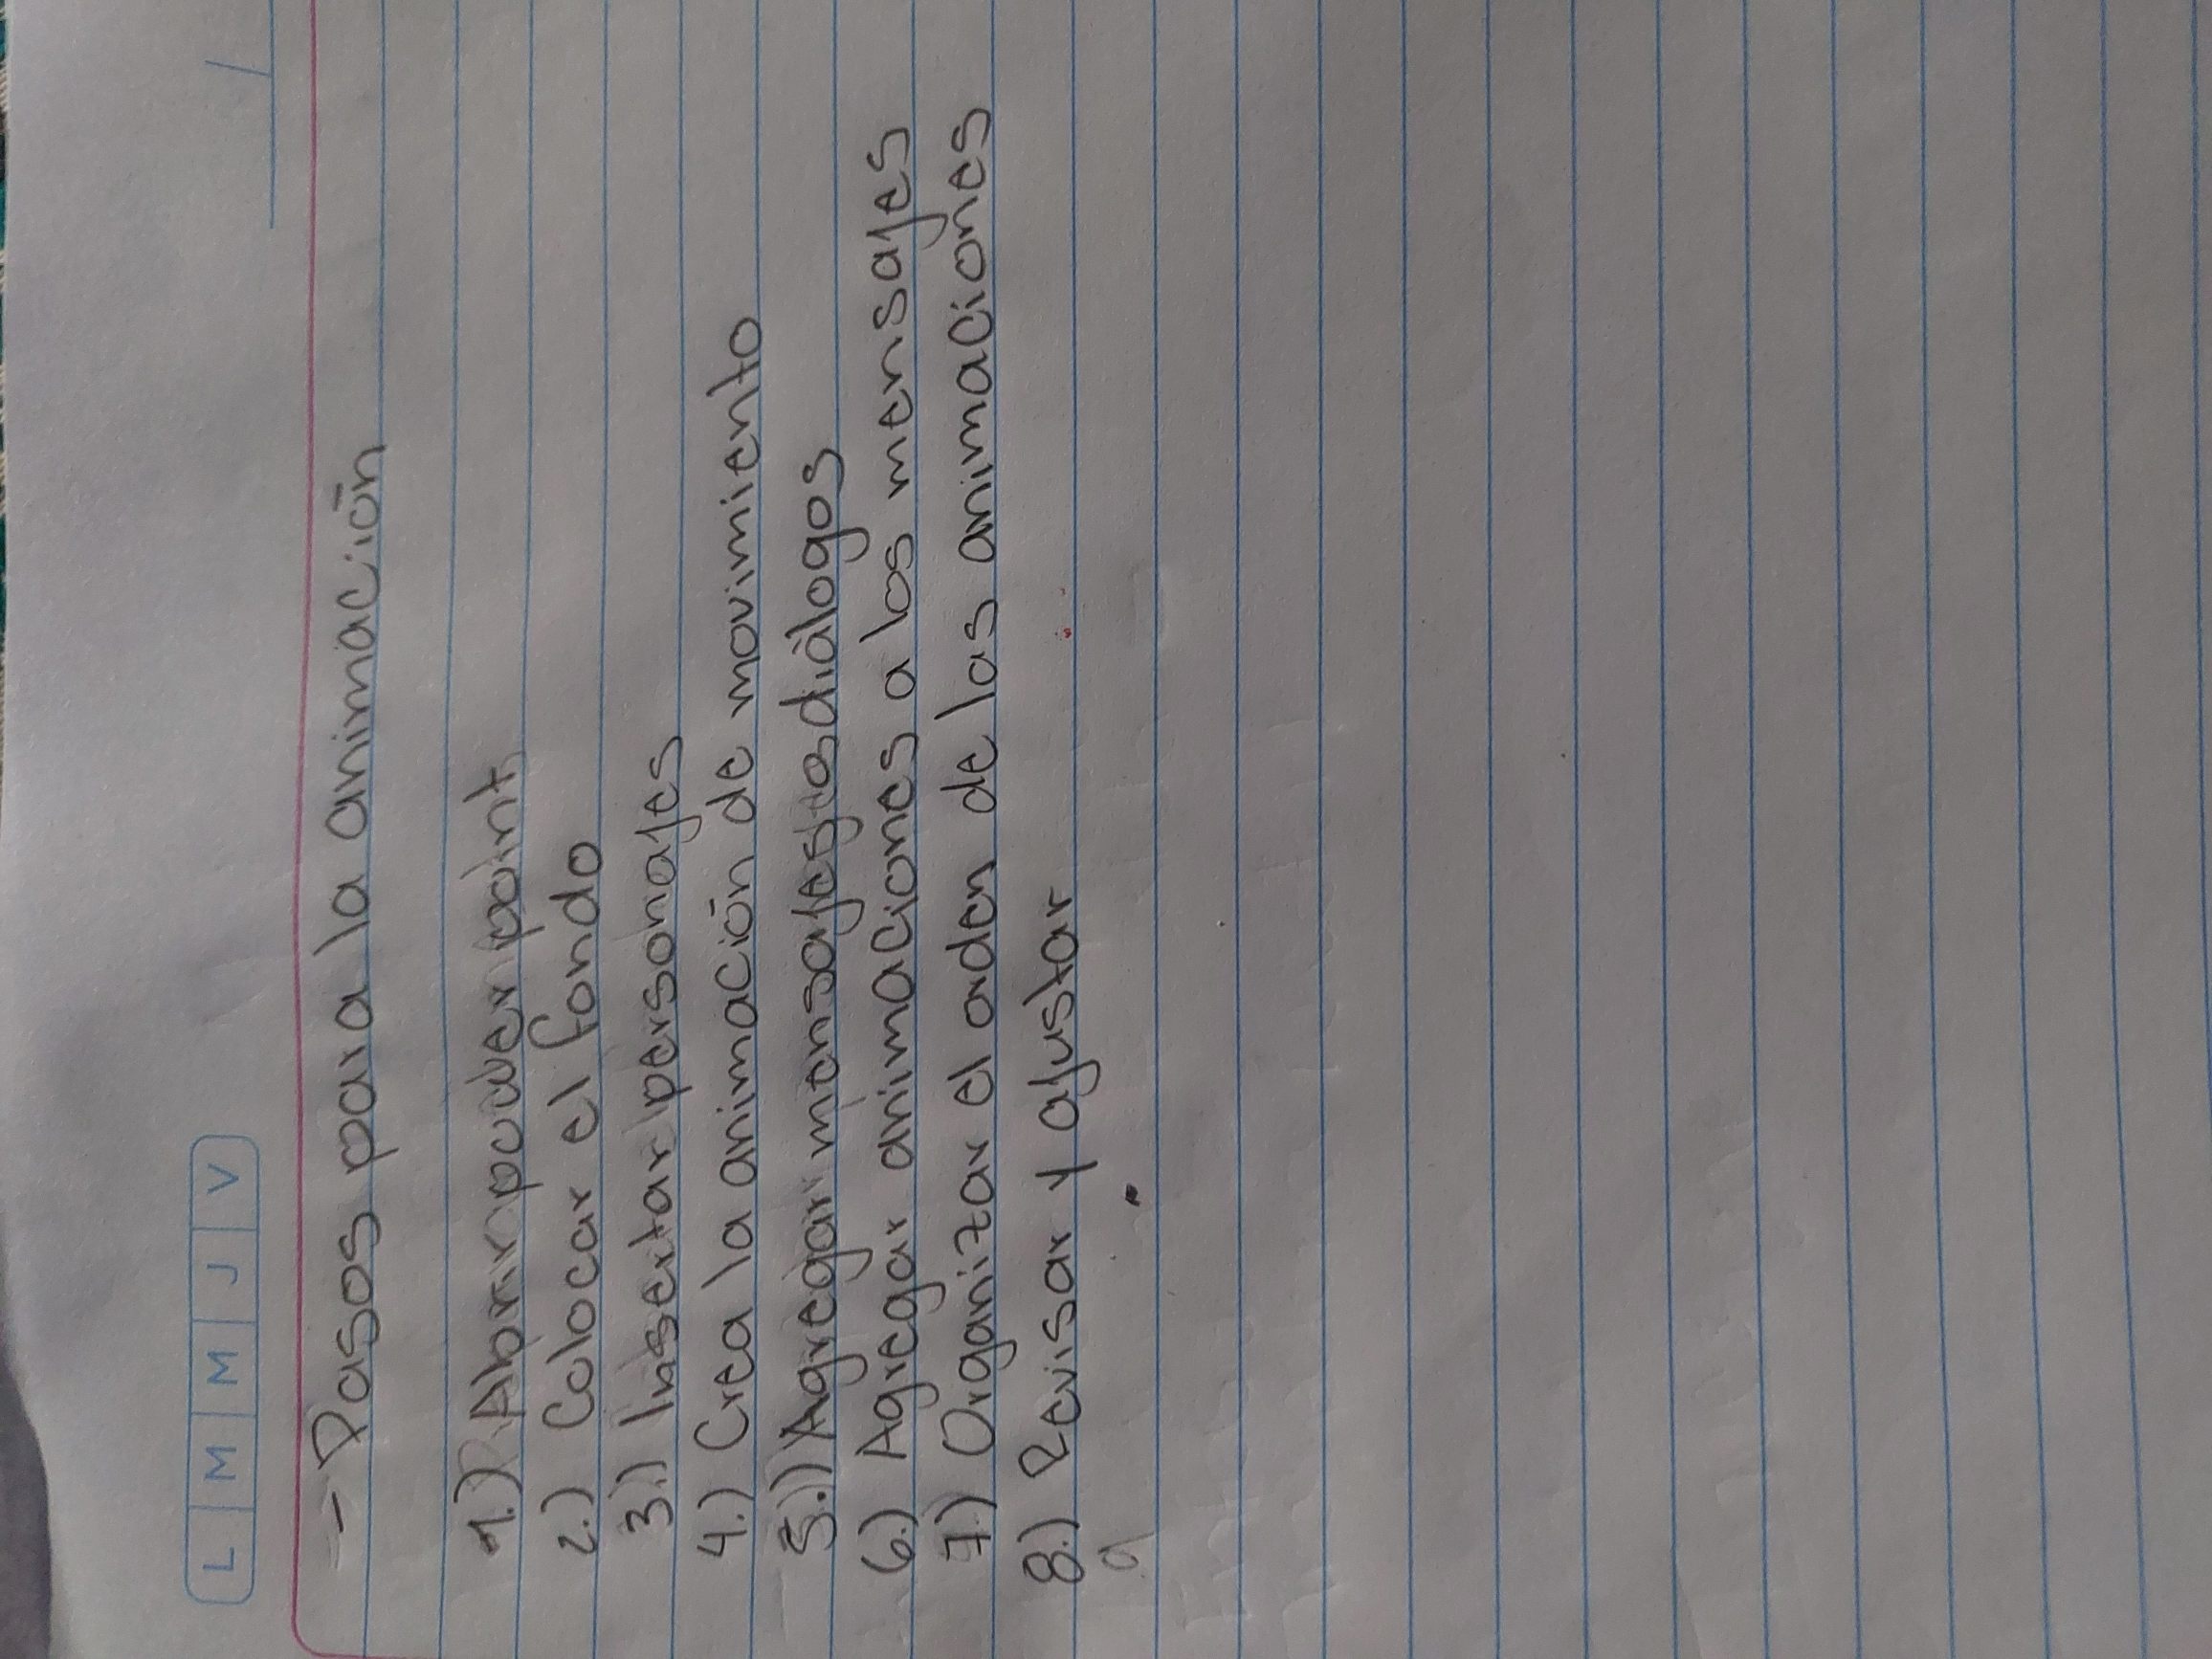 L M M J V
/
- Pasos para la animación
1.) Abrir power point
2.) Colocar el fondo
3.) Insertar personajes
4.) Crea la animación de movimiento
5.) Agregar mensajes diálogos
6.) Agregar animaciones a los mensajes
7.) Organizar el orden de las animaciones
8.) Revisar y ajustar
9